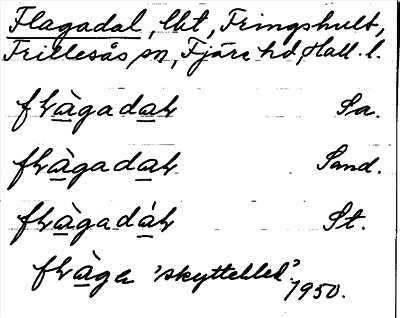 Flagadal, lkt, Fringshult,
Frillesås sn, Fjäre hd, Hall. l.
flàgadal Sa.
flàgadal Sand.
flàgadál St.
flàga 'skyttelled'.
1950.